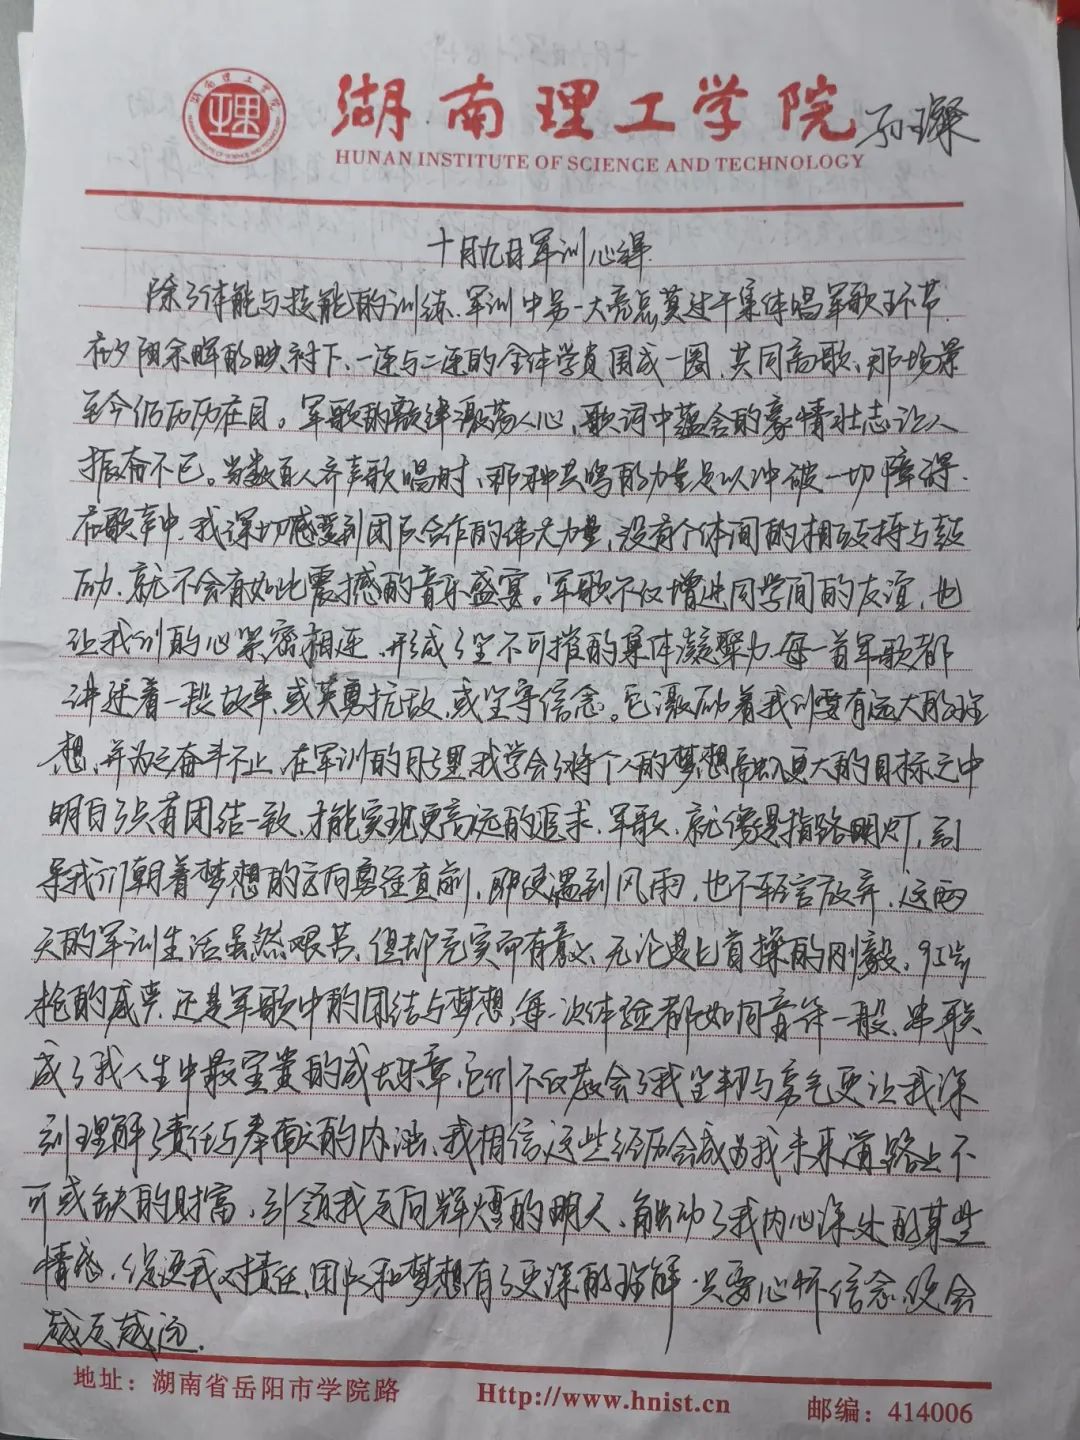 湖南理工学院
HUNAN INSTITUTE OF SCIENCE AND TECHNOLOGY
孙璨
十月九日军训心得
除了体能与技能的训练,军训中另一大亮点莫过于集体唱军歌环节
在夕阳余晖的映衬下、一连与二连的全体学员围成一圈,共同高歌、那场景
至今仍历历在目。军歌的旋律激荡人心、歌词中蕴含的豪情壮志让人
振奋不已。当数百人齐声歌唱时、那种共鸣的力量足以冲破一切障碍.
在歌声中,我深切感受到团队合作的伟大力量,没有个体间的相互支持与鼓
励、就不会有如此震撼的音乐盛宴。军歌不仅增进同学间的友谊,也
让我们的心紧密相连、形成了坚不可摧的集体凝聚力,每一首军歌都
讲述着一段故事,或英勇抗敌,或坚守信念。它激励着我们要有远大的理
想、并为之奋斗不止,在军训的日子里,我学会了将个人的梦想融入更大的目标之中
明白了只有团结一致、才能实现更高远的追求.军歌、就像是指路明灯,引
导我们朝着梦想的方向勇往直前,即使遇到风雨,也不轻言放弃,这两
天的军训生活虽然艰苦、但却充实而有意义、无论是匕首操的刚毅。95式
枪的威严,还是军歌中的团结与梦想,每一次体验都如同音符一般、串联
成了我人生中最宝贵的成长乐章,它们不仅教会了我坚韧与勇气更让我深
刻理解了责任与奉献的内涵、我相信这些经历会成为我未来道路上不
可或缺的财富、引领我走向辉煌的明天、触动了我内心深处的某些
情感、促使我对责任、团队和梦想有了更深的理解.只要心怀信念,便会
越走越远.
地址：湖南省岳阳市学院路
Http://www.hnist.cn
邮编：414006